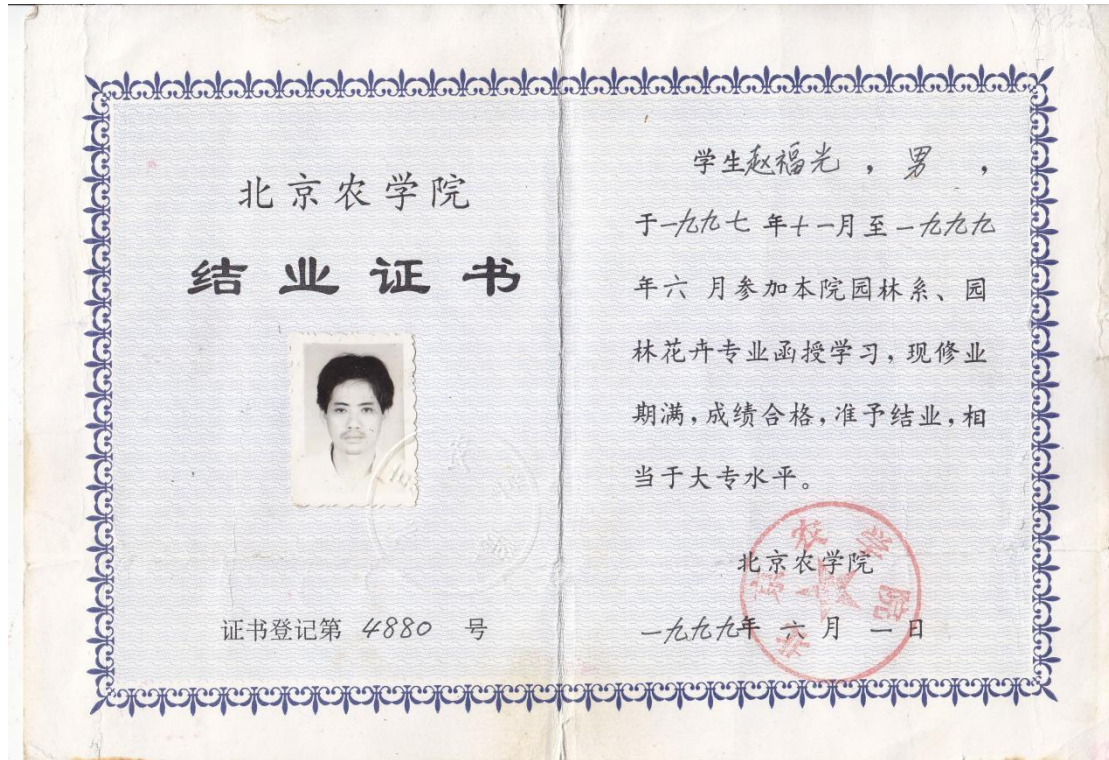 北京农学院
结业证书
证书登记第 4880 号
学生赵福光，男，
于一九九七年十一月至一九九九
年六 月参加本院园林系、园
林花卉专业函授学习，现修业
期满，成绩合格，准予结业，相
当于大专水平。
北京农学院
一九九九年 六月 一日
北京农学院